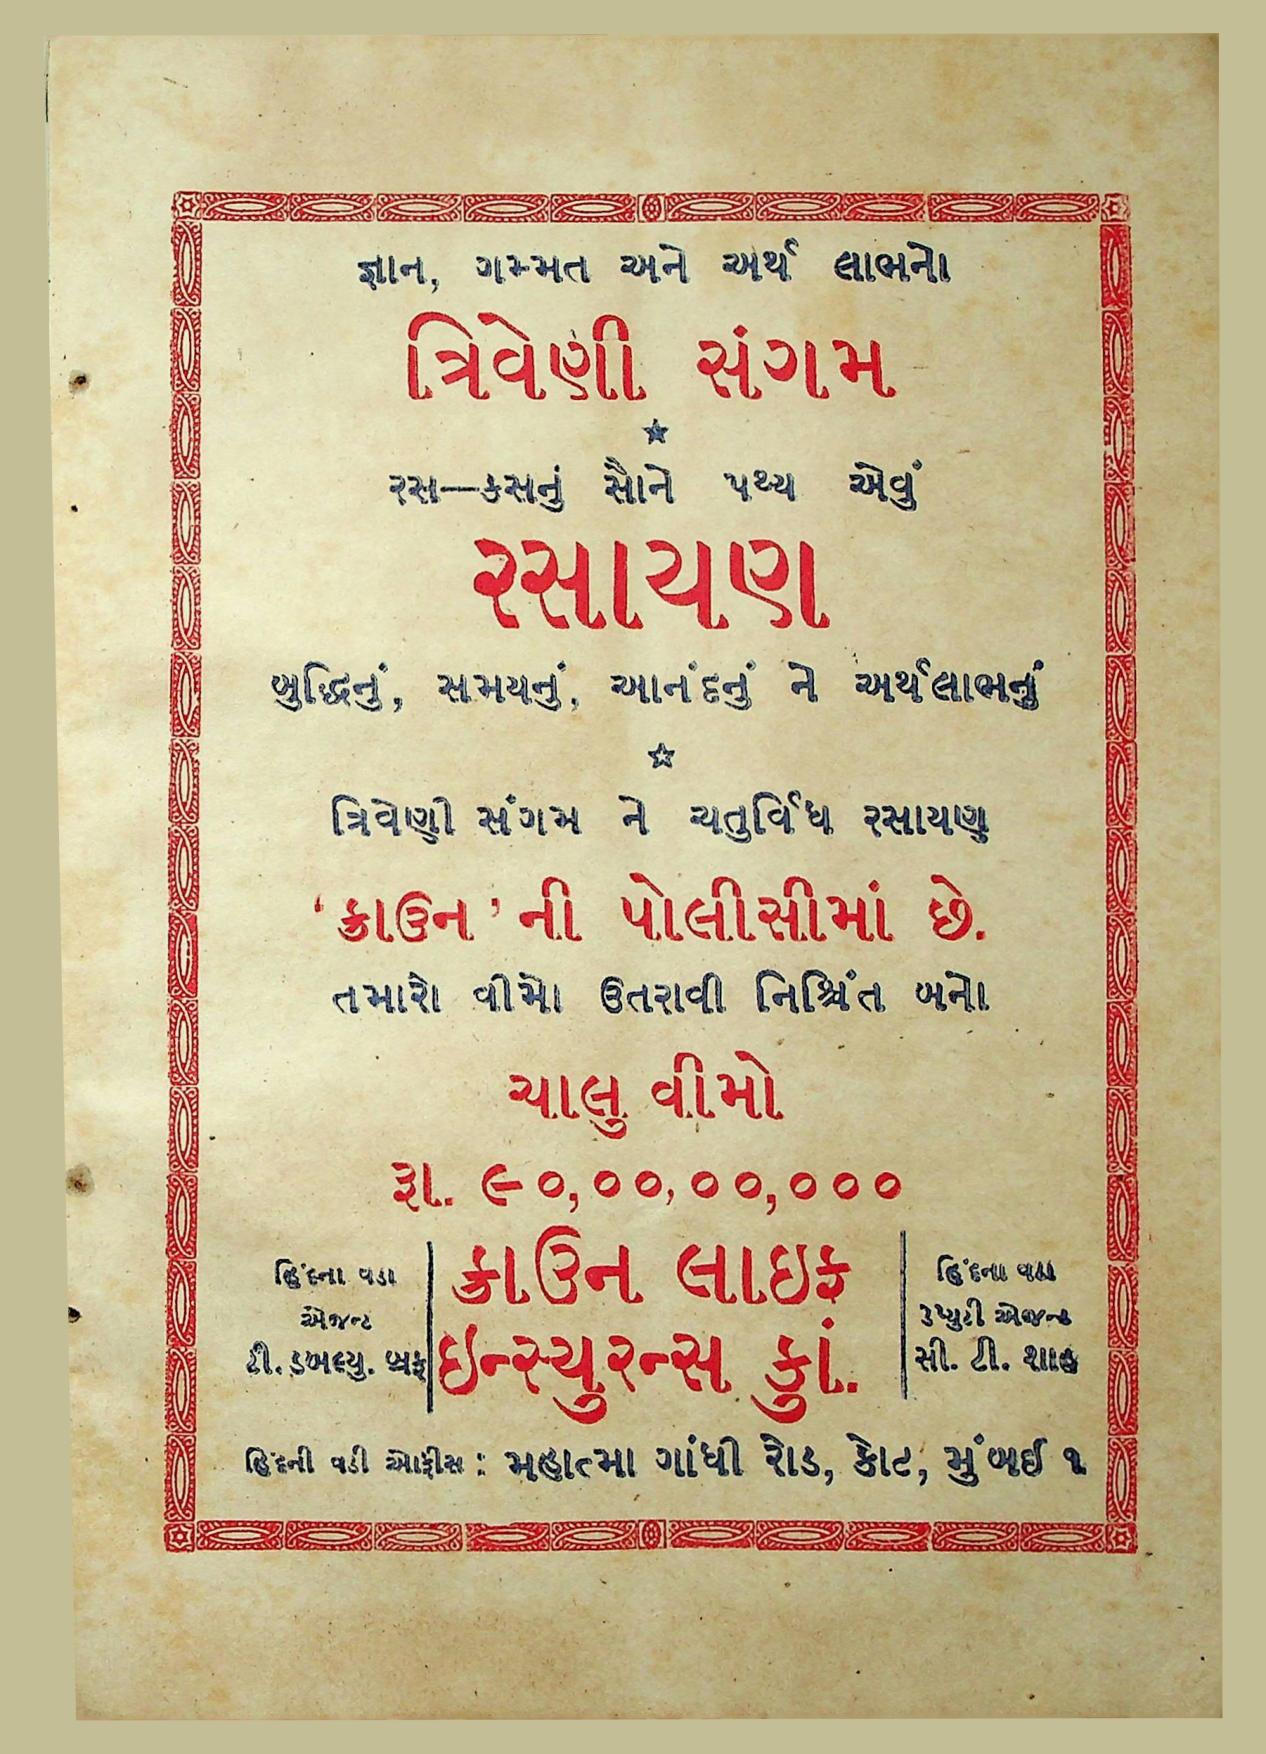 જ્ઞાન, ગમ્મત અને અર્થ લાભનો
ત્રિવેણી સંગમ
રસ—કસનું સૌને પથ્ય એવું
રસાયણ
બુદ્ધિનું, સમયનું, આનંદનું ને અર્થલાભનું
ત્રિવેણી સંગમ ને ચતુર્વિધ રસાયણ
‘ક્રાઉન’ની પોલીસીમાં છે.
તમારો વીમો ઉતરાવી નિશ્ચિંત બનો
ચાલુ વીમો
રૂા. ૯૦,૦૦,૦૦,૦૦૦
હિંદના વડા
એજન્ટ
ટી. ડબલ્યુ. બ્રફ
ક્રાઉન લાઇફ
ઇન્સ્યુરન્સ કાું.
હિંદના વડા
ડેપ્યુટી એજન્ટ
સી. ટી. શાહ
હિંદની વડી ઓફીસ : મહાત્મા ગાંધી રોડ, કોટ, મુંબઈ ૧